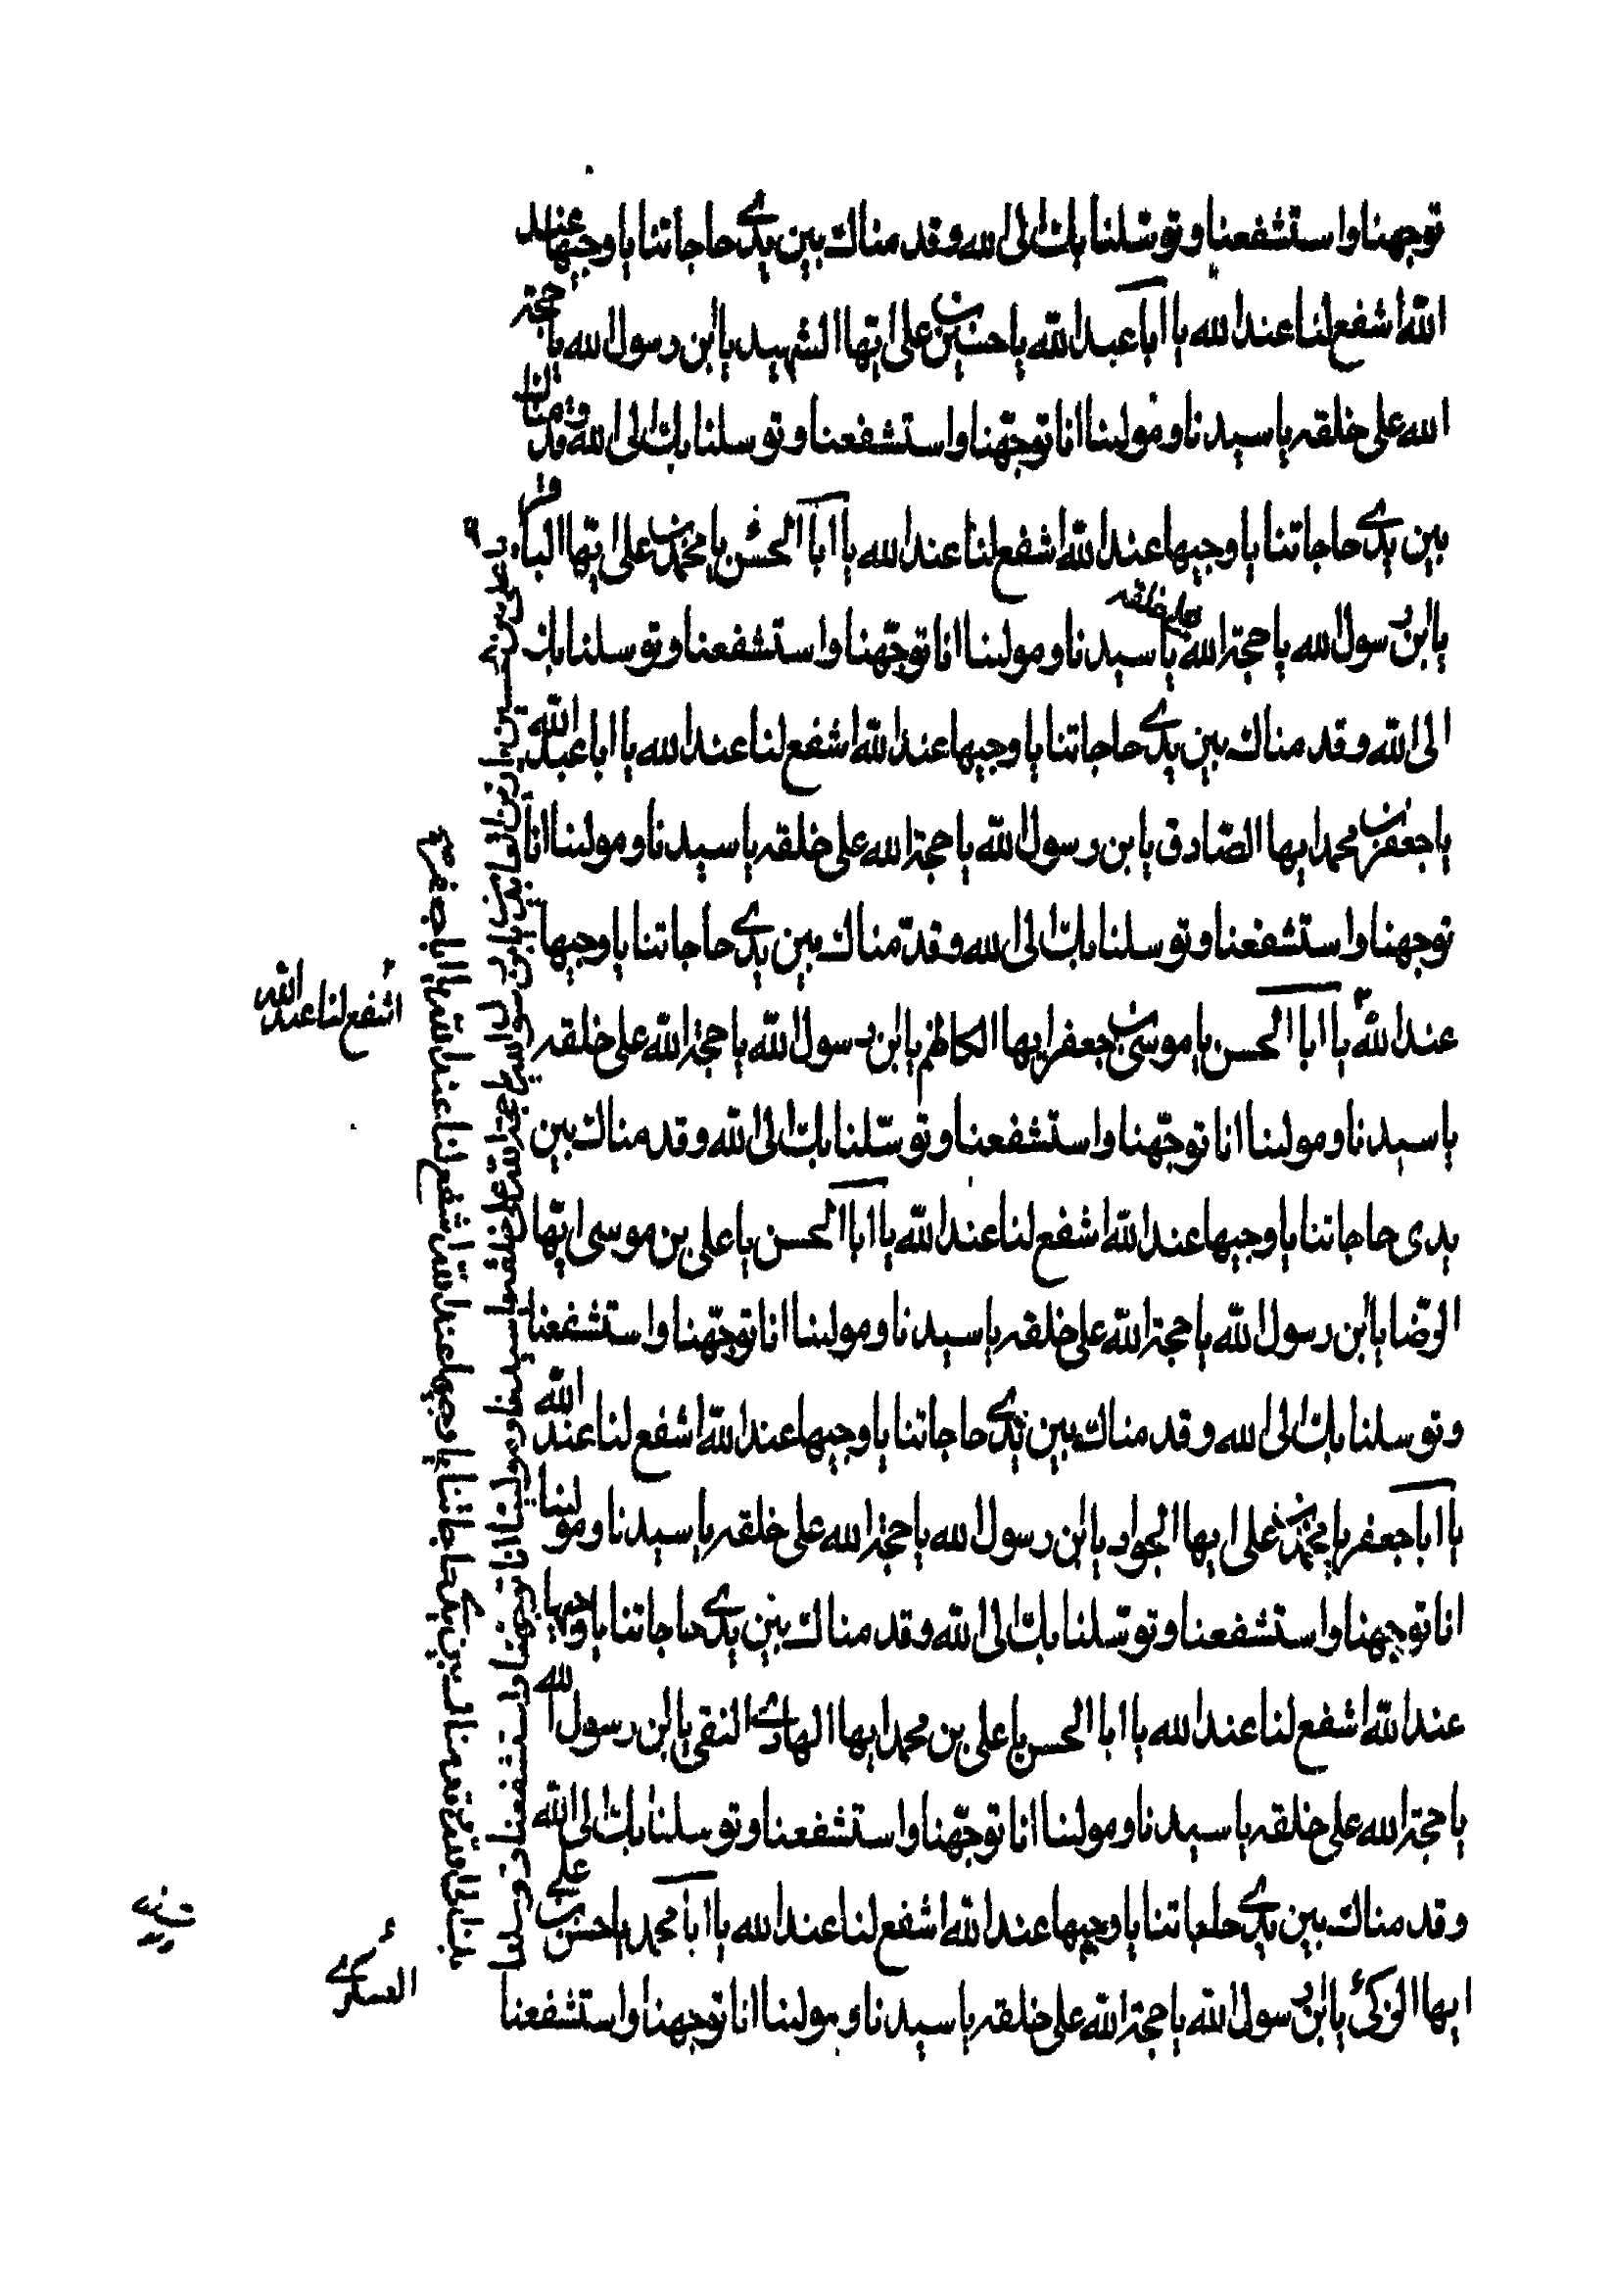 توجهنا واستشفعنا وتوسّلنا بك الى الله وقدمناك بين يدي حاجاتنا يا وجيها عند
الله اشفع لنا عند الله يا ابا عبد الله يا حسين بن على ايّها الشهيد يا ابن رسول الله يا حجة
الله على خلقه يا سيدنا ومولينا انا توجّهنا واستشفعنا وتوسلنا بك الى الله وقدمناك
بين يدي حاجاتنا يا وجيها عند الله اشفع لنا عند الله يا ابا الحسن يا محمد بن على ايّها الباقر
يا ابن رسول الله يا حجة الله على خلقه يا سيدنا ومولينا انا توجّهنا واستشفعنا وتوسلنا بك
الى الله وقدمناك بين يدي حاجاتنا يا وجيها عند الله اشفع لنا عند الله يا ابا عبد الله
يا جعفر بن محمد ايها الصّادق يا بن رسول الله يا حجة الله على خلقه يا سيدنا ومولينا انا
توجهنا واستشفعنا وتوسلنا بك الى الله وقدّمناك بين يدي حاجاتنا يا وجيها
عند الله يا ابا الحسن يا موسى بن جعفر ايها الكاظم يا ابن رسول الله يا حجة الله على خلقه
يا سيدنا ومولينا انا توجّهنا واستشفعنا وتوسّلنا بك الى الله وقدمناك بين
يدى حاجاتنا يا وجيها عند الله اشفع لنا عند الله يا ابا الحسن يا على بن موسى ايّها
الرّضا يا ابن رسول الله يا حجة الله على خلقه يا سيدنا ومولينا انا توجّهنا واستشفعنا
وتوسلنا بك الى الله وقدمناك بين يدي حاجاتنا يا وجيها عند الله اشفع لنا عند الله
يا ابا جعفر يا محمد بن على ايها الجواد يا ابن رسول الله يا حجة الله على خلقه يا سيدنا ومولينا
انا توجهنا واستشفعنا وتوسّلنا بك الى الله وقدمناك بين يدي حاجاتنا يا وجيها
عند الله اشفع لنا عند الله يا ابا الحسن يا على بن محمد ايها الهادي النقى يا ابن رسول الله
يا حجة الله على خلقه يا سيدنا ومولينا انا توجّهنا واستشفعنا وتوسلنا بك الى الله
وقدمناك بين يدي حاجاتنا يا وجيها عند الله اشفع لنا عند الله يا ابا محمد يا حسن بن على
ايها الزكىّ يا ابن رسول الله يا حجة الله على خلقه يا سيدنا ومولينا انا توجهنا واستشفعنا
يا على بن الحسين يا زين العابدين يا ابن رسول الله يا حجة الله على خلقه يا سيدنا ومولينا انا توجهنا واستشفعنا وتوسلنا
بك الى الله وقدمناك بين يدي حاجاتنا يا وجيها عند الله اشفع لنا عند الله يا ابا جعفر
اشفع لنا عند الله
العسكرى